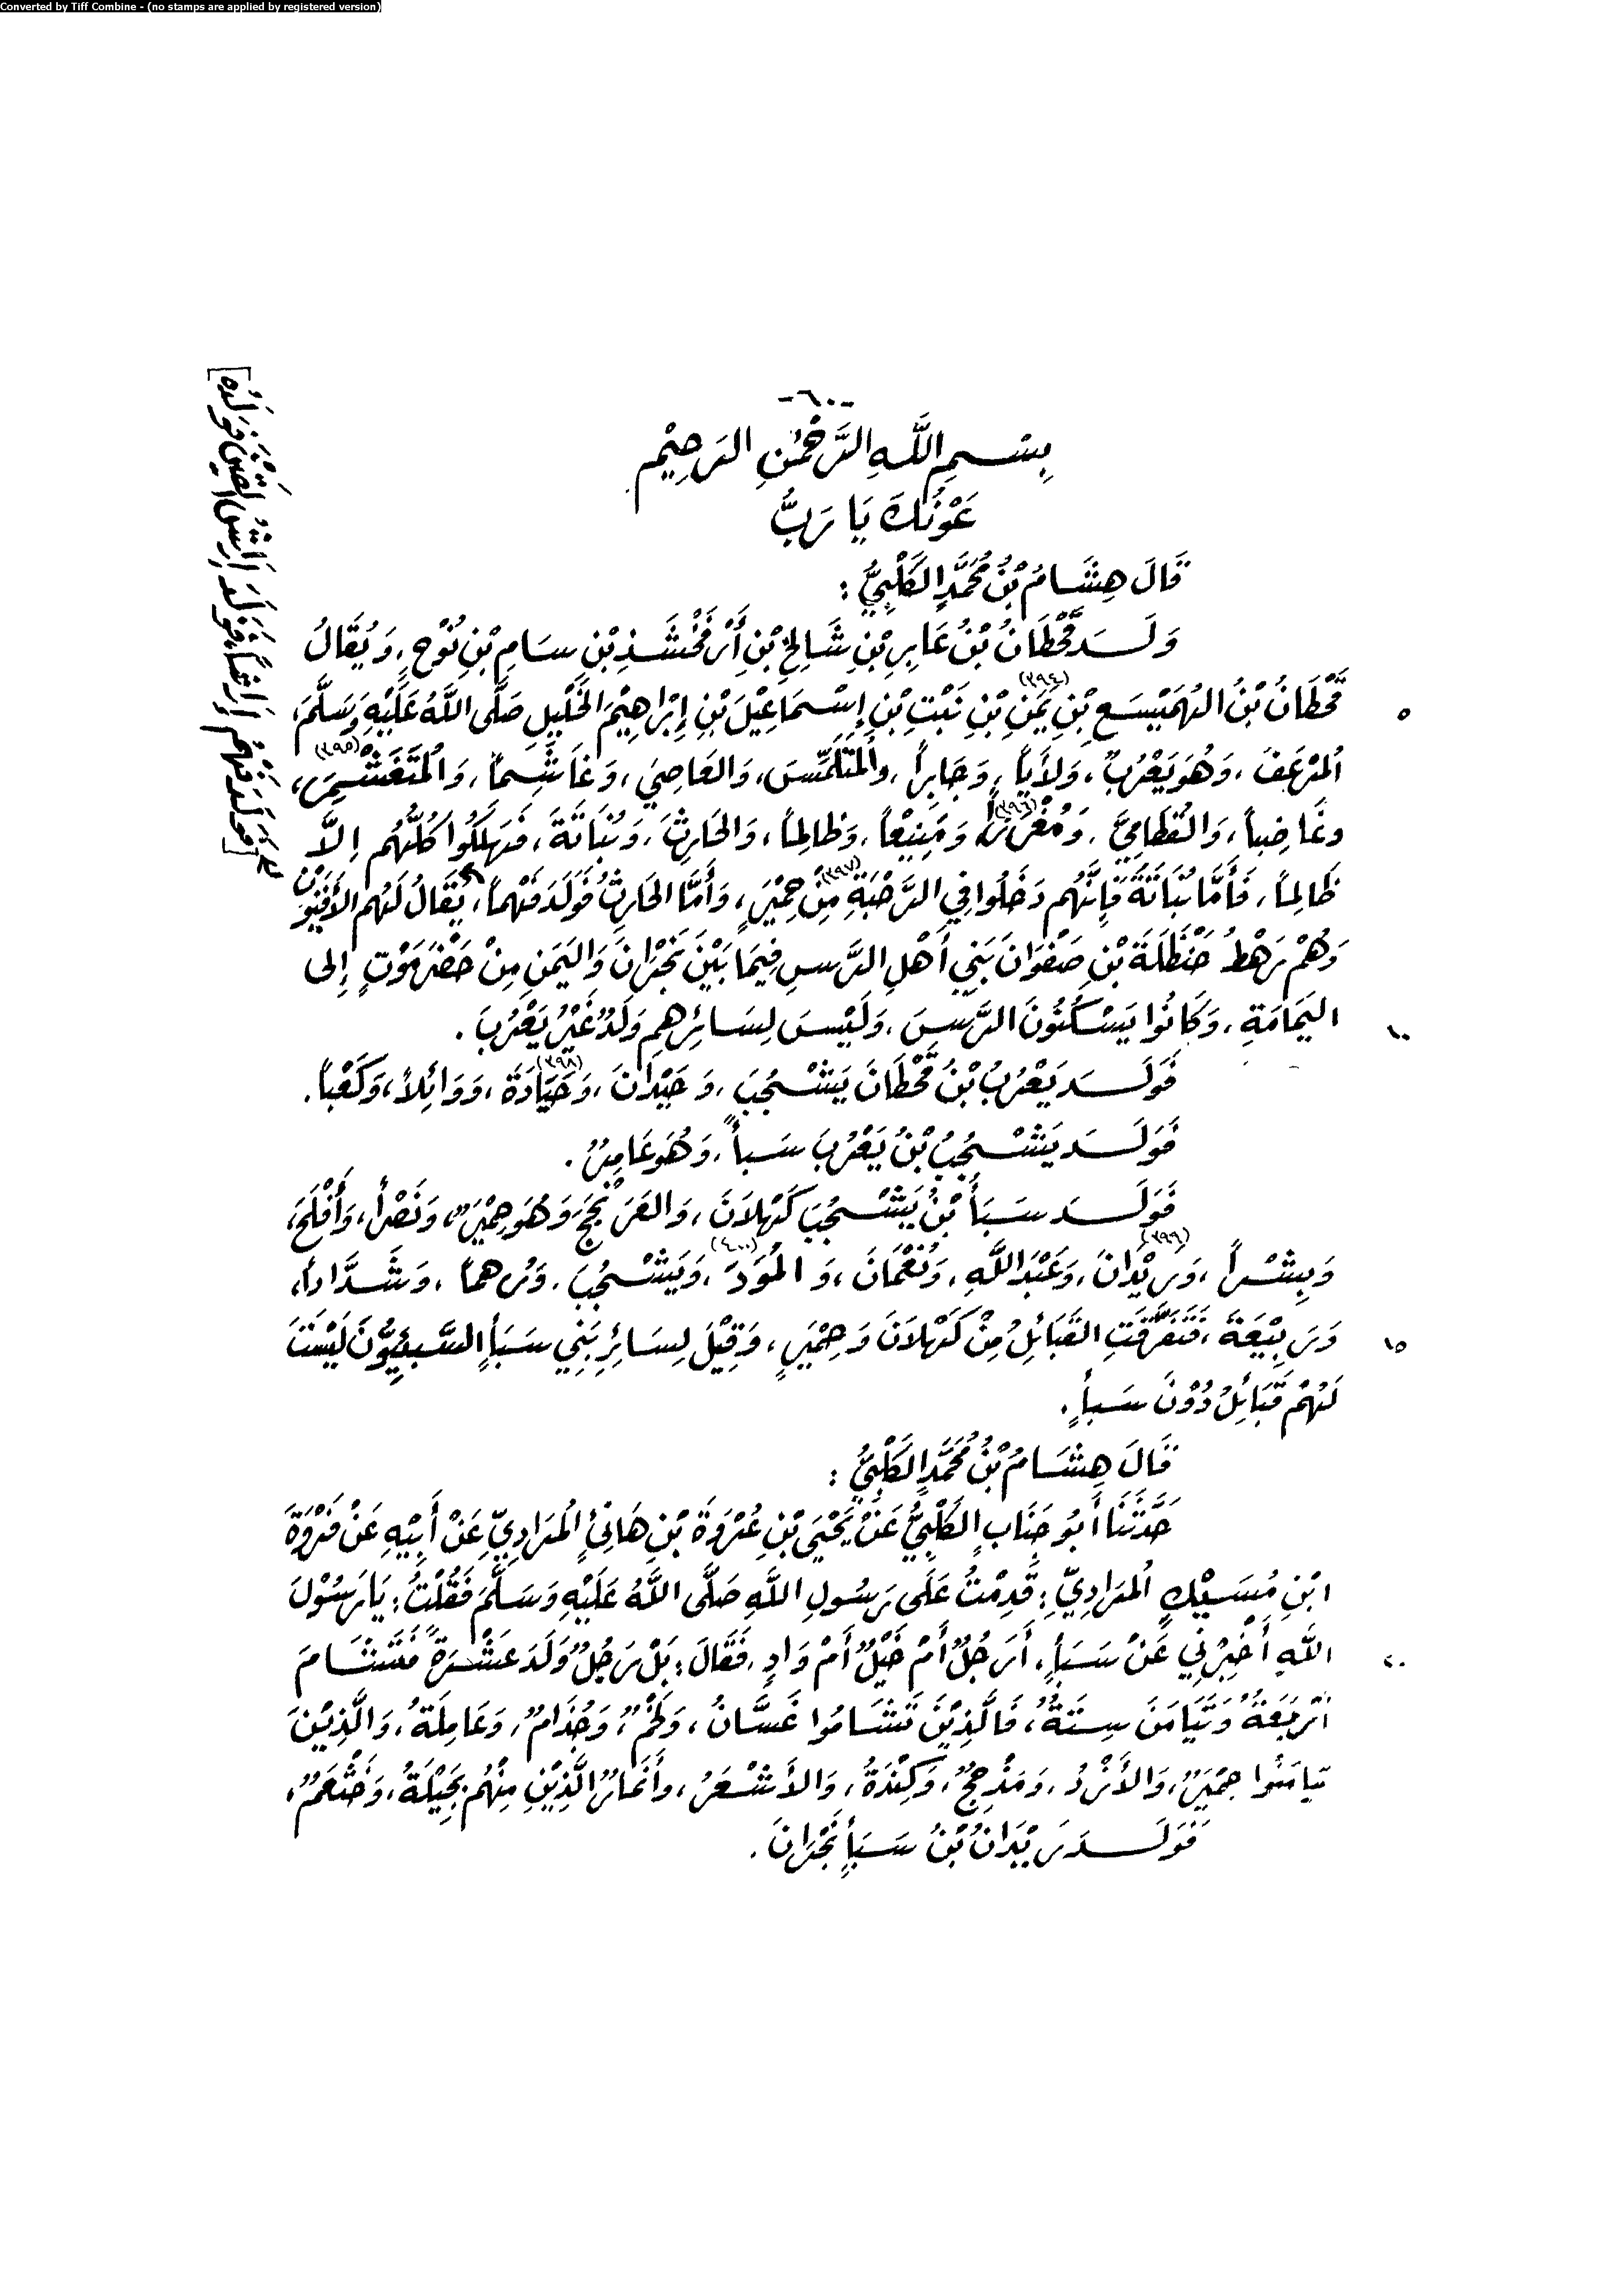 Converted by Tiff Combine - (no stamps are applied by registered version)
-٦٠-
بِسْمِ اللَّهِ الرَّحْمٰنِ الرَحِيْمِ
عَوْنَكَ يَا رَبُّ
قَالَ هِشَامُ بْنُ مُحَمَّدٍ الكَلْبِيُّ :
وَلَـدَ قَحْطَانُ بْنُ عَابِرِ بْنِ شَالِخِ بْنِ أَرْفَخْشَذِ بْنِ سَامِ بْنِ نُوْحٍ، وَيُقَالُ
قَحْطَانُ بْنُ الهُمَيْسَعِ بْنِ يَمَنِ (٣٩٤) بْنِ نَبْتِ بْنِ إِسْمَاعِيْلَ بْنِ إِبْرَاهِيْمَ الخَلِيْلِ صَلَّى اللَّهُ عَلَيْهِ وَسَلَّمَ، ٥
المُرْعِفَ، وَهُوَ يَعْرُبُ، وَلأْيَاً، وَجَابِراً، والمُتَلَمِّسَ، وَالعَاصِيَ، وَغَاشِماً، وَالمُتَغَشْمِرَ (٣٩٥)،
وغَاضِباً، وَالقُطَامِيَّ، وَمُغْرِزاً (٣٩٦) وَمَنِيْعاً، وَظَالِماً، وَالحَارِثَ، وَنُبَاتَةَ، فَهَلَكُوا كُلُّهُم إِلاَّ
ظَالِماً، فَأَمَّا نُبَاتَةُ فَإِنَّهُم دَخَلُوا فِي الرَّحْبَةِ (٣٩٧) مِنْ حِمْيَرٍ، وَأَمَّا الحَارِثُ فَوَلَدَ فَهْماً، يُقَالُ لَهُم الأَقْيُوْنَ
وَهُمْ رَهْطُ حَنْظَلَةَ بْنِ صَفْوَانَ بَنِي أَهْلِ الرَّسِ فِيمَا بَيْنَ نَجْرَانَ وَاليَمَنِ مِنْ حَضْرَمَوْتٍ إِلى
اليَمَامَةِ، وَكَانُوا يَسْكُنُونَ الرَّسَ، وَلَيْسَ لِسَائِرِهِم وَلَدٌ غَيْرُ يَعْرُبَ. ١٠
فَوَلَـدَ يَعْرُبُ بْنُ قَحْطَانَ يَشْجُبَ، وَحَيْدَانَ، وَحَيَادَةَ (٣٩٨)، وَوَائِلاً، وَكَعْباً.
فَوَلَـدَ يَشْجُبُ بْنُ يَعْرُبَ سَبأً، وَهُوَ عَامِرٌ.
فَوَلَـدَ سَبَأُ بْنُ يَشْجُبَ كَهْلاَنَ، وَالعَرَنْجَجَ وَهُوَ حِمْيَرٌ، وَنَصْراً، وَأَفْلَحَ،
وَبِشْراً، وَرَيْدَانَ (٣٩٩)، وَعَبْدَاللَّهِ، وَنُعْمَانَ، وَالمُوَدَ (٤٠٠)، وَيَشْجُبَ، وَرُهماً، وَشَدَّاداً،
وَرَبِيْعَةَ، فَتَفَرَّقَتِ القَبَائِلُ مِنْ كَهْلاَنَ وَحِمْيَرٍ، وَقِيْلَ لِسَائِرِ بَنِي سَبَأٍ السَّبئِيُّونَ لَيْسَتَ ١٥
لَهُمْ قَبَائِلُ دُوْنَ سَبأٍ.
قَالَ هِشَامُ بْنُ مُحَمَّدٍ الكَلْبِيُّ :
حَدَّثَنَا أَبُو جَنَابٍ الكَلْبِيُّ عَنْ يَحْيَى بْنِ عُرْوَةَ بْنِ هَانِئٍ المُرَادِيِّ عَنْ أَبِيْهِ عَنْ فَرْوَةَ
ابْنِ مُسَيْكٍ المُرَادِيِّ: قَدِمْتُ عَلَى رَسُولِ اللَّهِ صَلَّى اللَّهُ عَلَيْهِ وَسَلَّمَ فَقُلْتُ: يَا رَسُوْلَ
اللَّهِ أَخْبِرْنِي عَنْ سَبَأٍ، أَرَجُلٌ أَمْ خَيْلٌ أَمْ وَادٍ، فَقَالَ: بَلْ رَجُلٌ وَلَدَ عَشْرَةً فَتَشَامَ ٢٠
أَرْبَعَةٌ وَتَيَامَنَ سِتَةٌ، فَالَّذِيْنَ تَشَامُوا غَسَّانُ، وَلَخْمٌ، وَجُذَامٌ، وَعَامِلَةُ، وَالَّذِيْنَ
تيامَنُوا حِمْيَرٌ، وَالأَزْدُ، وَمَذْحِجٌ، وَكِنْدَةُ، وَالأَشْعَرُ، وأَنْمَارٌ الَّذِيْنِ مِنْهُم بَجِيْلَةُ، وَخَثْعَمٌ،
فَوَلَـدَ رَيْدَانُ بْنُ سَبَأٍ نَجْرَانَ.